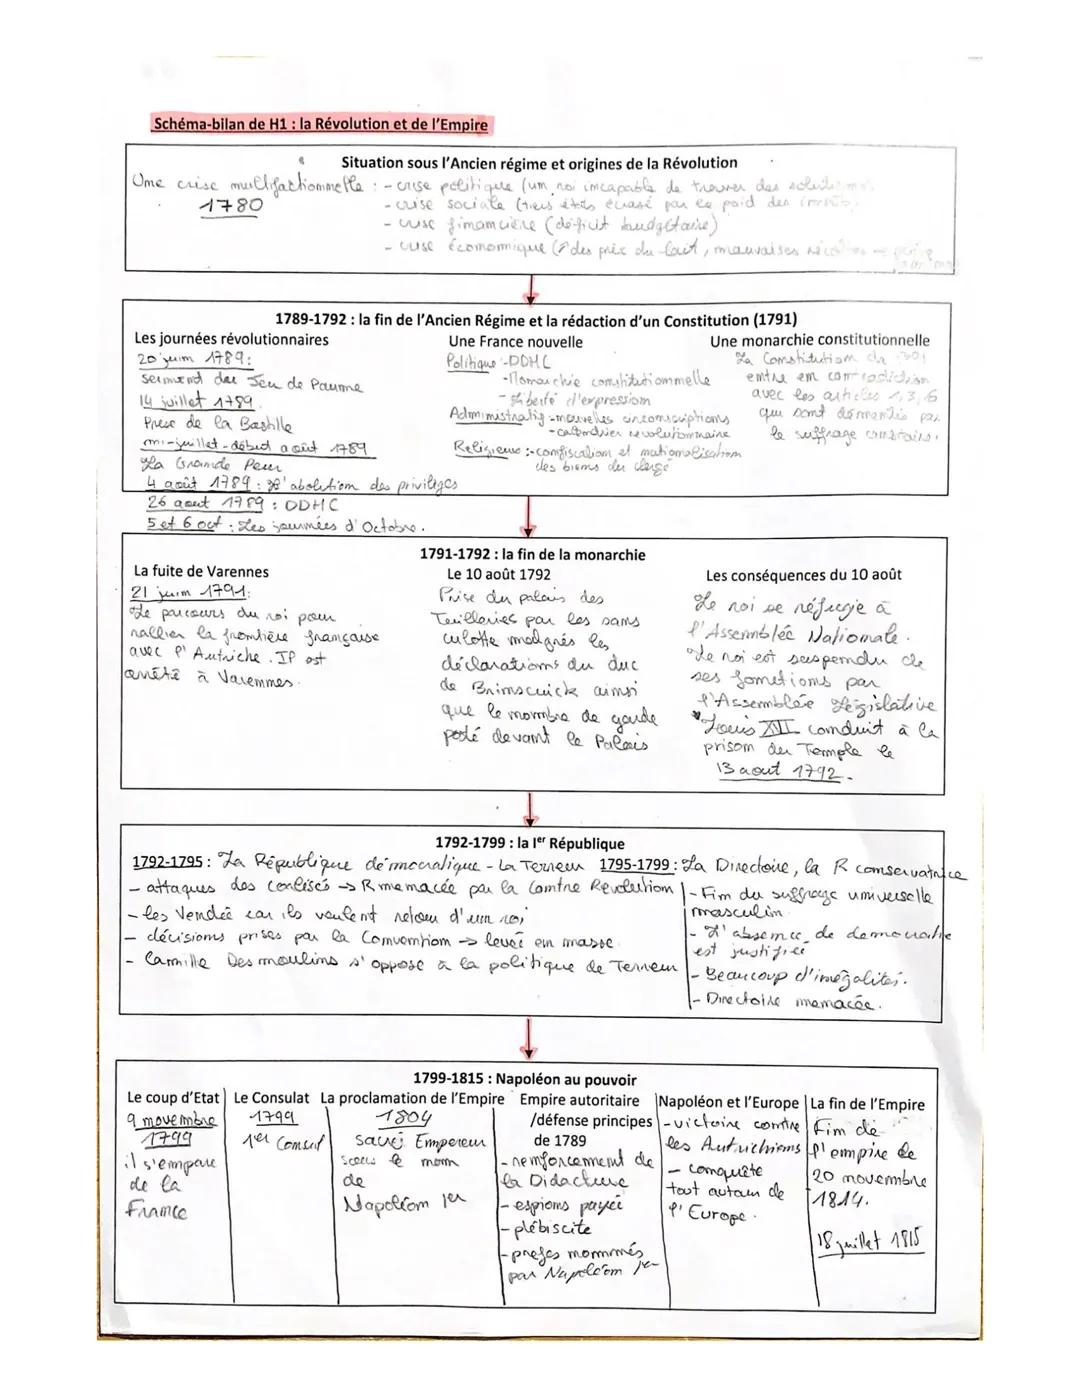 Schéma-bilan de H1 : la Révolution et de l'Empire
Situation sous l'Ancien régime et origines de la Révolution
Une crise multifactionnelle : - crise politique (un roi incapable de trouver des solutions
1780
- crise sociale (tiers états écrasé par le poid des impôts)
- crise financière (déficit budgétaire)
- crise économique (↗ des prix du , mauvaises récoltes →
1789-1792 : la fin de l'Ancien Régime et la rédaction d'un Constitution (1791)
Les journées révolutionnaires
20 juin 1789 :
serment du Jeu de Paume
14 juillet 1789.
Prise de la Bastille
mi-juillet - début août 1789
La Grande Peur
4 août 1789 : L'abolition des privilèges
26 aout 1789 : DDHC
5 et 6 oct : Les journées d'Octobre.
Une France nouvelle
Politique :- DDHC
- Monarchie constitutionnelle
- Liberté d'expression
Administratif - nouvelles circonscriptions
- calendrier révolutionnaire
Religieuse :- confiscation et nationalisation
des biens du clergé
Une monarchie constitutionnelle
La Constitution de
entre en contradiction
avec les articles 1, 3, 6
qui sont démentis par
le suffrage censitaire.
1791-1792 : la fin de la monarchie
La fuite de Varennes
21 juin 1791 :
Le parcours du roi pour
rallier la frontière française
avec l'Autriche. IP est
arrêté à Varennes.
Le 10 août 1792
Prise du palais des
Tuilleries par les sans
culotte malgrés les
déclarations du duc
de Brinscuick ainsi
que le nombre de garde
posté devant le Palais
Les conséquences du 10 août
Le roi se réfugie à
l'Assemblée Nationale.
Le roi est suspendu de
ses fonctions par
l'Assemblée Législative
Louis XVI conduit à la
prison du Temple le
13 aout 1792.
1792-1799 : la Ière République
1792-1795 : La République démocratique - La Terreur
- attaques des coalisés → R menacée par la Contre Révolution
- les Vendée car ils veulent retour d'un roi
- décisions prises par la Convention → levée en masse
- Camille Desmoulins s'oppose à la politique de Terreur
1795-1799 : La Directoire, la R conservatrice
- Fin du suffrage universelle
masculin
- L'absence de democratie
est justifiée
- Beaucoup d'inégalités.
- Directoire menacée.
1799-1815 : Napoléon au pouvoir
Le coup d'Etat
9 novembre
1799
il s'empare
de la
France
Le Consulat
1799
1er Consul
La proclamation de l'Empire
1804
Empereur
sous le nom
de
Napoléon Ier
Empire autoritaire
/défense principes
de 1789
- renforcement de
la Didacture
- espions payée
- plébiscite
- prefes nommés
par Napoléon Ier
Napoléon et l'Europe
- victoire contre
les Autruchiens
- conquête
tout autour de
l'Europe.
La fin de l'Empire
Fin de
l'empire le
20 novembre
1814.
18 juillet 1815